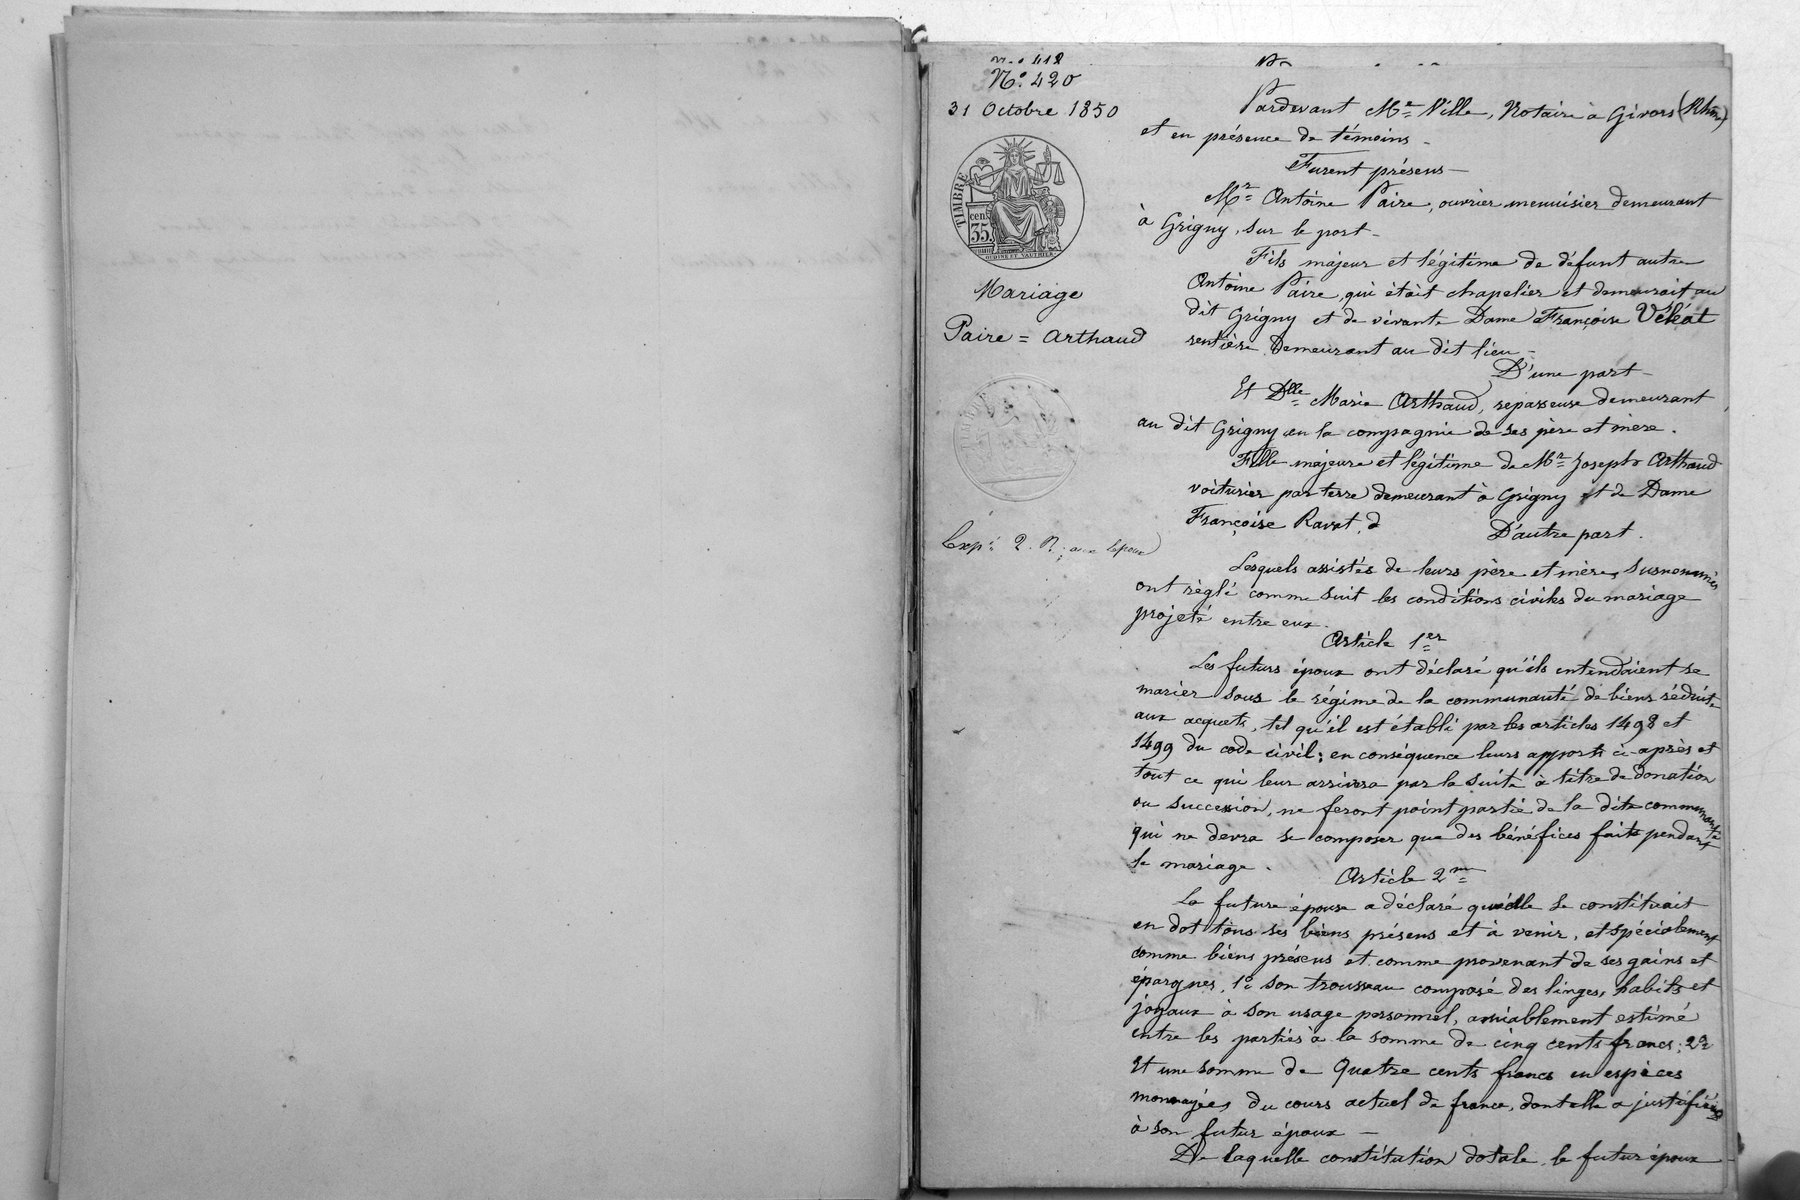 N.° 420
31 Octobre 1850
TIMBRE
cen.
35.
OUDINÉ ET VAUTHIER
Mariage
Paire = Arthaud
Pardevant Me Ville, Notaire à Givors (Rhône)
et en présence de témoins -
Furent présens -
Mr Antoine Paire, ouvrier menuisier demeurant
à Grigny, sur le port -
Fils majeur et légitime de défunt autre
Antoine Paire, qui était chapelier et demeurait au
dit Grigny et de vivante Dame Françoise
rentière demeurant au dit lieu -
D'une part -
Et Dlle Marie Arthaud, repasseuse demeurant
au dit Grigny en la compagnie de ses père et mère.
Fille majeure et légitime de Mr Joseph Arthaud
voiturier par terre demeurant à Grigny et de Dame
Françoise Ravat,
D'autre part.
Lesquels assistés de leurs père et mère, susnommés
ont réglé comme suit les conditions civiles du mariage
projeté entre eux.
Article 1er
Les futurs époux ont déclaré qu'ils entendaient se
marier sous le régime de la communauté de biens réduite
aux acquets, tel qu'il est établi par les articles 1498 et
1499 du code civil; en conséquence leurs apports ci-après et
tout ce qui leur arrivera par la suite à titre de donation
ou succession, ne feront point partie de la dite communauté
qui ne devra se composer que des bénéfices faits pendant
le mariage.
Article 2me
La future épouse a déclaré qu'elle se constituait
en dot tous ses biens présens et à venir, et spécialement
comme biens présens et comme provenant de ses gains et
épargnes, 1° son trousseau composé des linges, habits et
joyaux à son usage personnel, amiablement estimé
entre les parties à la somme de cinq cents francs; 2°
Et une somme de Quatre cents francs en espèces
monnayées du cours actuel de france, dont elle a justifié
à son futur époux -
De laquelle constitution dotale le futur époux